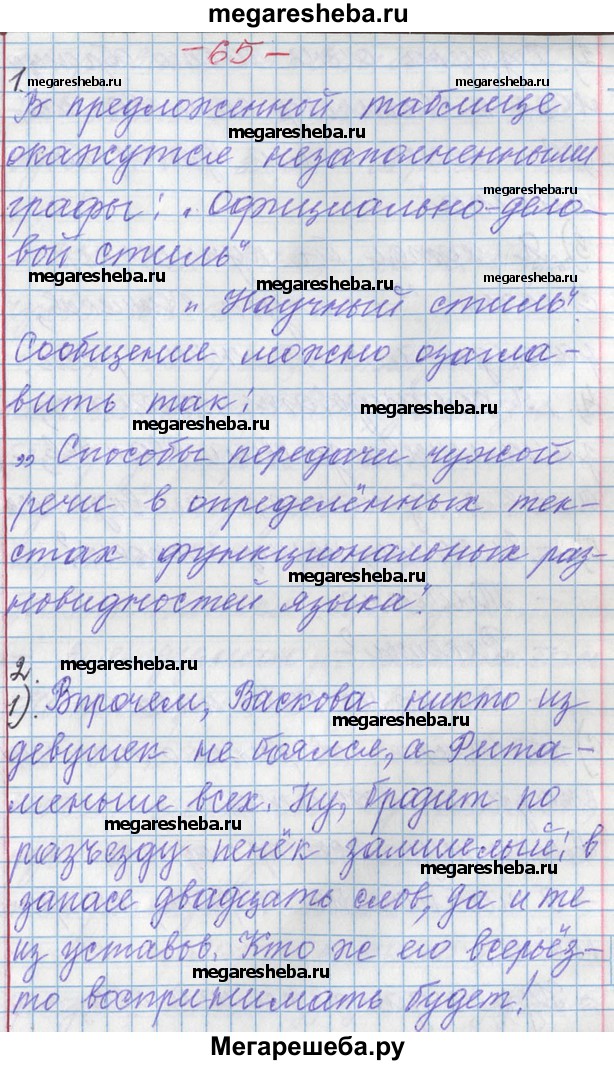 megaresheba.ru
- 65 -
megaresheba.ru
1.
megaresheba.ru
В предложенной таблице
megaresheba.ru
окажутся незаполненными
megaresheba.ru
графы: „Официально-дело-
вой стиль"
megaresheba.ru
megaresheba.ru
megaresheba.ru
„Научный стиль".
Сообщение можно озагла-
вить так:
megaresheba.ru
megaresheba.ru
„Способы передачи чужой
речи в определённых тек-
стах функциональных раз-
megaresheba.ru
новидностей языка".
2.
megaresheba.ru
1). Впрочем, Васкова никто из
megaresheba.ru
девушек не боялся, а Рита -
меньше всех. Ну, бродит по
megaresheba.ru
разъезду пенёк замшелый: в
megaresheba.ru
запасе двадцать слов, да и те
из уставов. Кто же его всерьёз-
megaresheba.ru
то воспринимать будет!
Мегарешеба.ру